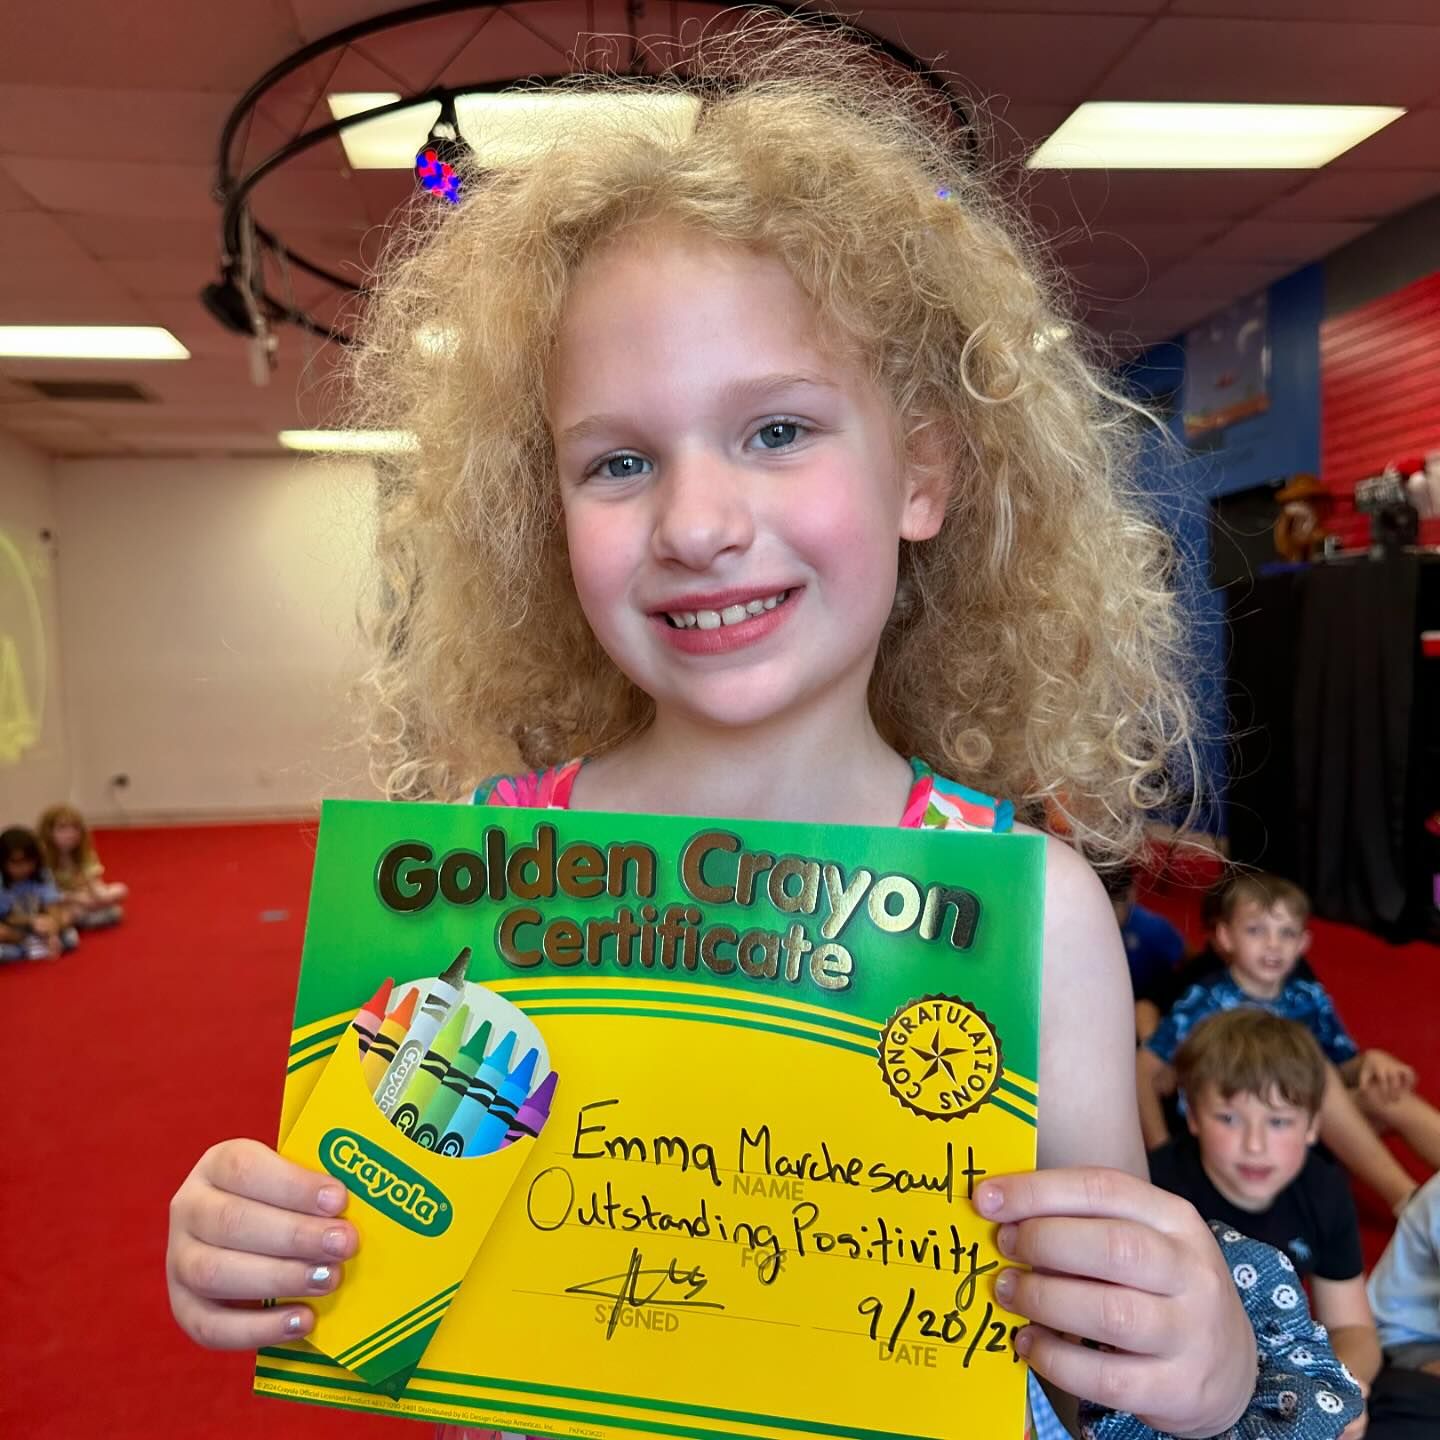 Golden Crayon
Certificate
CONGRATULATIONS
Crayola
Crayola
Emma Marchesault
NAME
Outstanding Positivity
FOR
SIGNED
9/20/2
DATE
© 2024 Crayola Official Licensed Product 48321090-2401 Distributed by IG Design Group Americas, Inc.